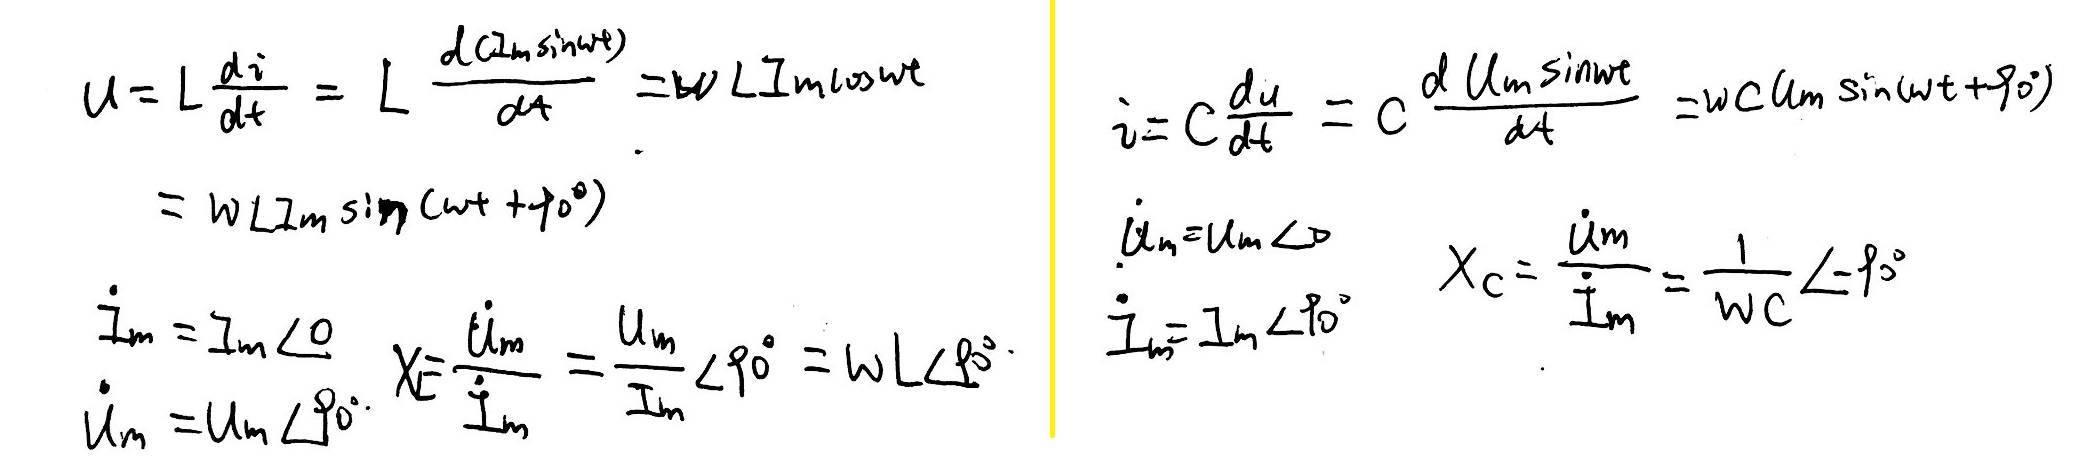 u = L di/dt = L d(Im sinwt)/dt = wLIm coswt
= wLIm sin(wt+90°)
İm = Im∠0
U̇m = Um∠90°.
XL = U̇m/İm = Um/Im ∠90° = wL∠90°.
i = C du/dt = C d Um sinwt/dt = wCUm sin(wt+90°)
U̇m = Um∠0
İm = Im∠90°
Xc = U̇m/İm = 1/wC ∠-90°